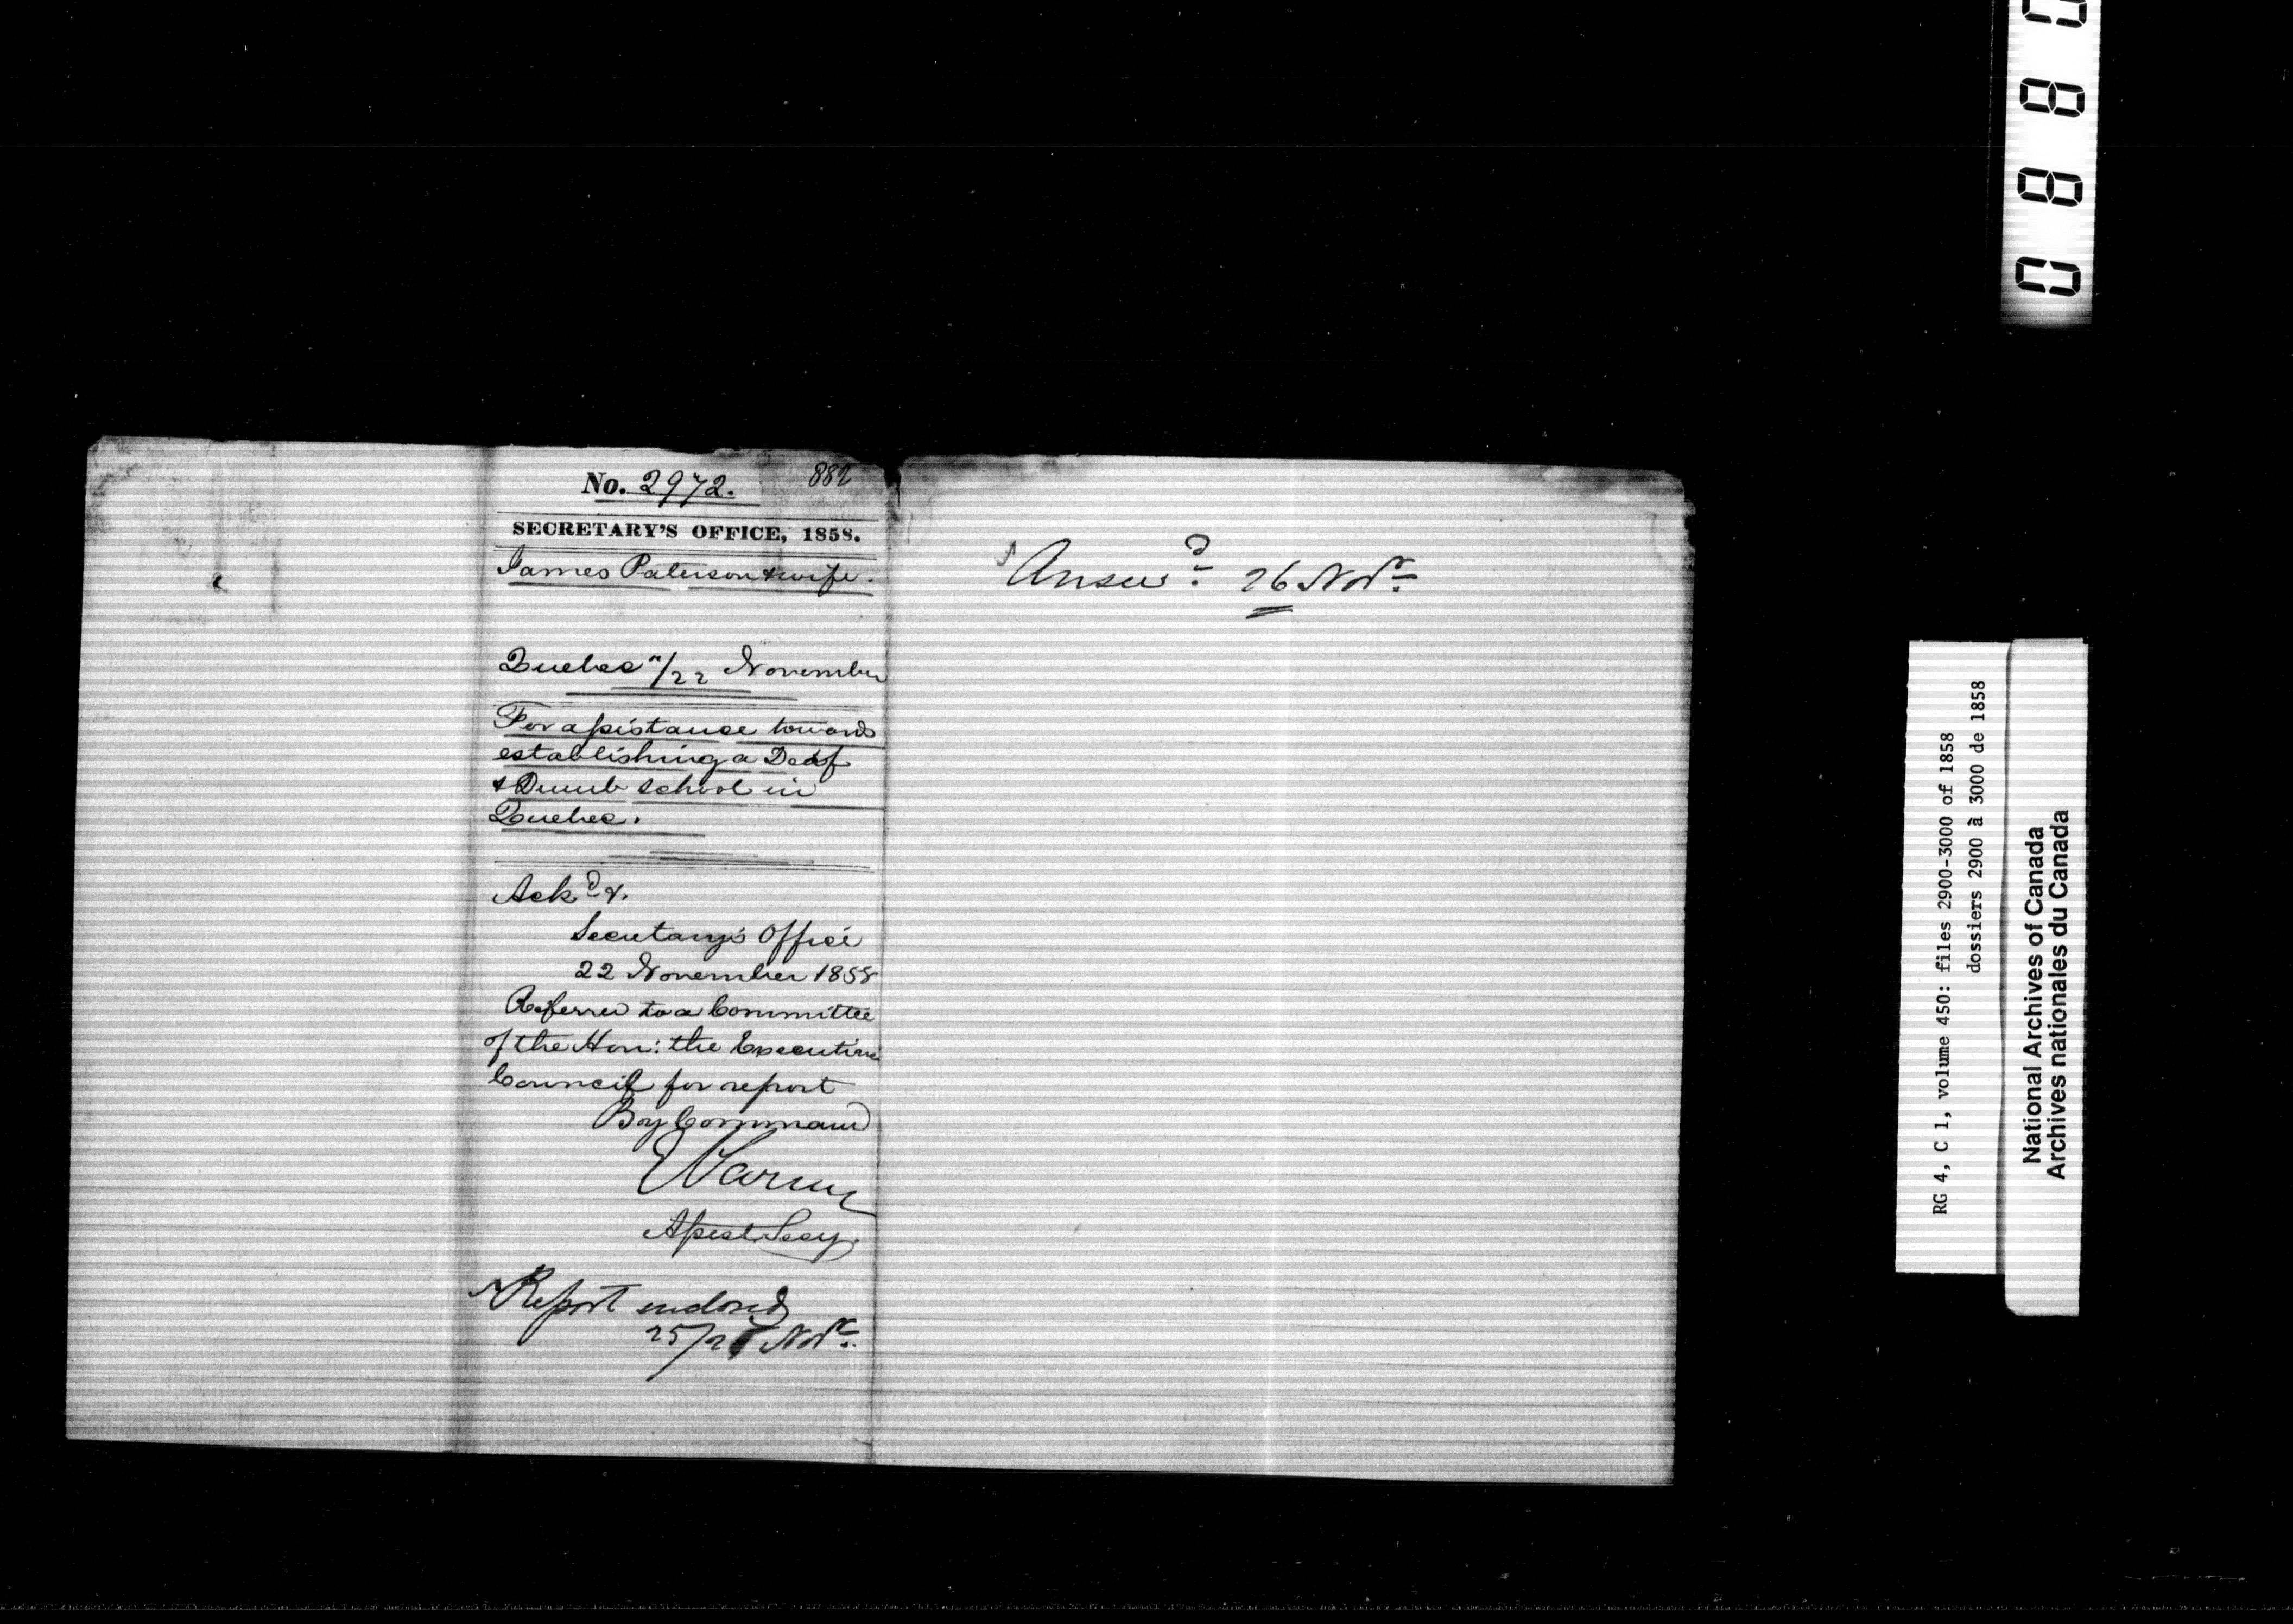 No. 2972. 882
SECRETARY'S OFFICE, 1858.
James Paterson & wife.
Quebec /22 November
For assistance towards
establishing a Deaf
& Dumb school in
Quebec.
Ackd &.
Secretary's Office
22 November 1858
Referred to a Committee
of the Hon: the Executive
Council for report
By Command
Assist Secy.
Report enclosed
25/ Novr.
Answd. 26 Novr.
0880
RG 4, C 1, volume 450: files 2900-3000 of 1858
dossiers 2900 à 3000 de 1858
National Archives of Canada
Archives nationales du Canada